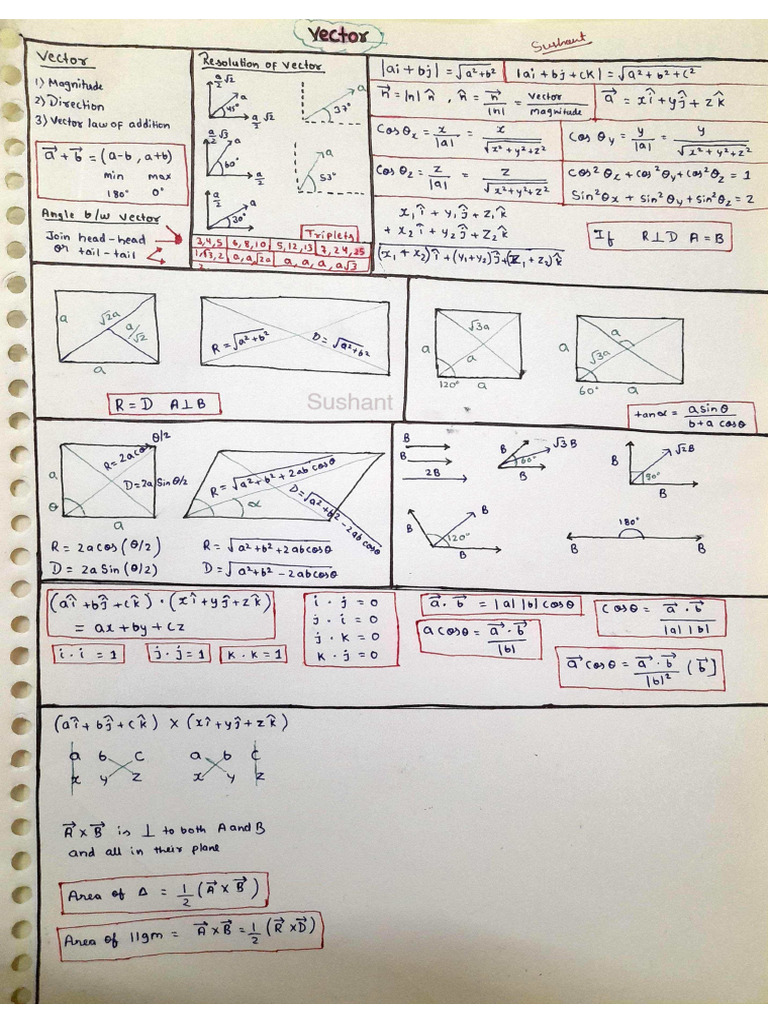 Vector
Sushant
Vector
1) Magnitude
2) Direction
3) Vector law of addition
a⃗ + b⃗ = (a-b, a+b)
min max
180° 0°
Angle b/w vector
Join head-head
or tail-tail
Resolution of vector
a/2 √2
a
45°
a/2 √2
a
37°
a/2 √3
a
60°
a/2
a
53°
a/2
a
30°
Triplets
3,4,5 6,8,10 5,12,13 7,24,25
1,√3,2 a,a,√2a a,a,a,a√3
|ai + bj| = √a²+b²
|ai + bj + ck| = √a²+b²+c²
n⃗ = |n| n̂ , n̂ = n⃗/|n| = vector/magnitude
a⃗ = xî + yĵ + zk̂
Cosθx = x/|a| = x/√x²+y²+z²
Cosθy = y/|a| = y/√x²+y²+z²
Cosθz = z/|a| = z/√x²+y²+z²
Cos²θx + cos²θy + cos²θz = 1
Sin²θx + sin²θy + sin²θz = 2
x₁î + y₁ĵ + z₁k̂
+ x₂î + y₂ĵ + z₂k̂
(x₁ + x₂)î + (y₁+y₂)ĵ + (z₁ + z₂)k̂
If R⊥D A=B
a
√2a
a/√2
a
R = √a²+b²
D = √a²+b²
R = D A⊥B
Sushant
a
√3a
a
120°
a
a
a
√3a
60°
a
tanα = a sinθ / b + a cosθ
a
θ
a
R = 2a cos θ/2
D = 2a Sin θ/2
R = √a²+b²+2ab cosθ
D = √a²+b²-2ab cosθ
α
R = 2a cos(θ/2)
D = 2a Sin(θ/2)
R = √a²+b²+2ab cosθ
D = √a²+b²-2ab cosθ
B
B
2B
B
√3B
60°
B
B
√2B
90°
B
B
B
120°
B
180°
B
B
(aî + bĵ + ck̂) · (xî + yĵ + zk̂)
= ax + by + cz
i · i = 1
j · j = 1
k · k = 1
i · j = 0
j · i = 0
j · k = 0
k · j = 0
a⃗ · b⃗ = |a| |b| cosθ
a cosθ = a⃗ · b⃗ / |b|
cosθ = a⃗ · b⃗ / |a| |b|
a⃗ cosθ = a⃗ · b⃗ / |b|² (b⃗]
(aî + bĵ + ck̂) × (xî + yĵ + zk̂)
a b c
x y z
a b c
x y z
A⃗ × B⃗ is ⊥ to both A and B
and all in their plane
Area of Δ = 1/2 (A⃗ × B⃗)
Area of ||gm = A⃗ × B⃗ = 1/2 (R⃗ × D⃗)